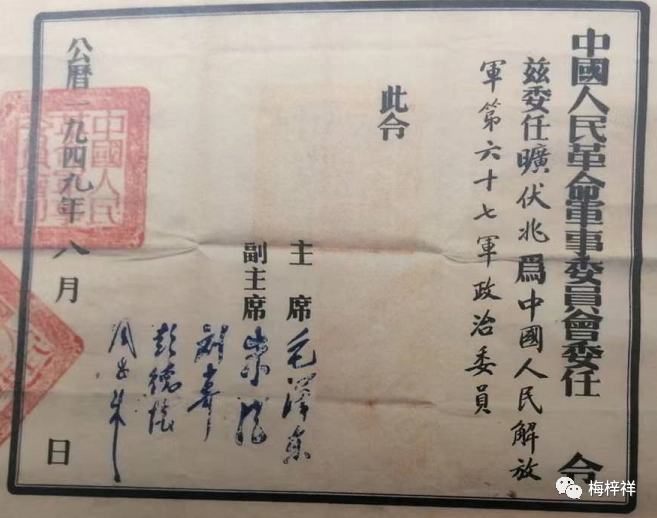 中國人民革命軍事委員會委任令
茲委任曠伏兆爲中國人民解放
軍第六十七軍政治委員
此令
主席 毛澤東
副主席 朱德
刘少奇
彭德怀
周恩来
公曆一九四九年八月 日
中國人民
梅梓祥